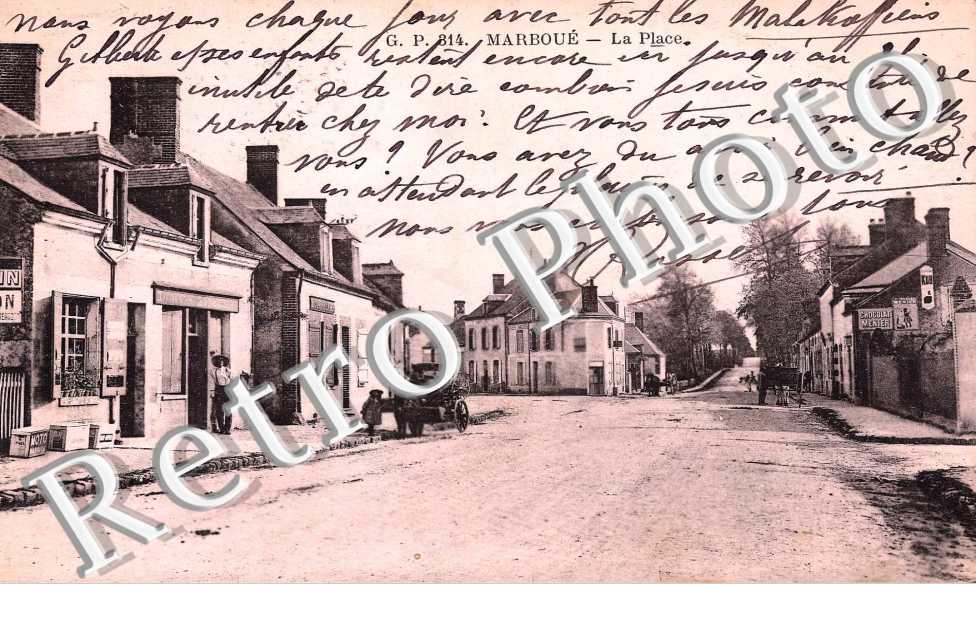 nous voyons chaque jour avec tout les Malakoffiens
G. P. 314. MARBOUÉ — La Place
Gilberte et ses enfants restent encore ici jusqu'au
inutile de te dire combien je suis contente de
rentrer chez moi. Et vous tous comment allez
vous? Vous avez du avoir bien chaud?
en attendant le plaisir de se revoir
nous vous tous
UN
ON
CHOCOLAT
MENIER
MOTO
Retro Photo